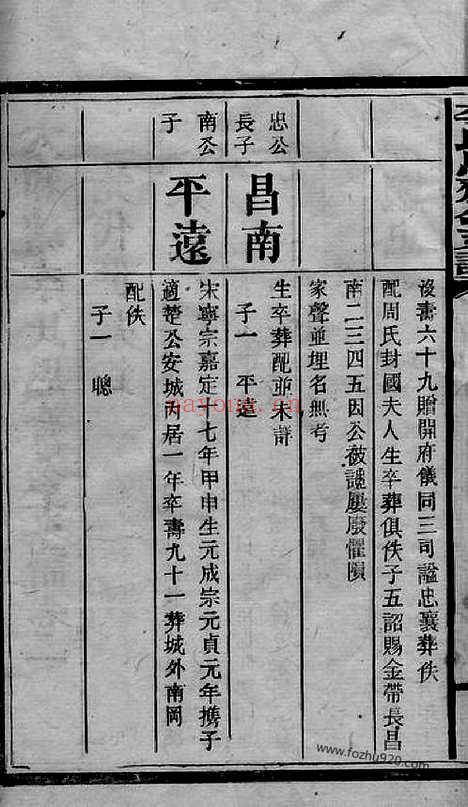 沒壽六十九贈開府儀同三司諡忠襄葬佚
配周氏封國夫人生卒葬俱佚子五詔賜金帶長昌
南二三四五因公被譴屢廢懼隕
家聲並埋名無考
忠公
長子
昌南
生卒葬配並未詳
子一 平遠
南公
子
平遠
宋寧宗嘉定十七年甲申生元成宗元貞元年携子
適楚公安城內居一年卒壽九十一葬城外南岡
配佚
子一 聰
nayong.cn
www.fozhu920.com